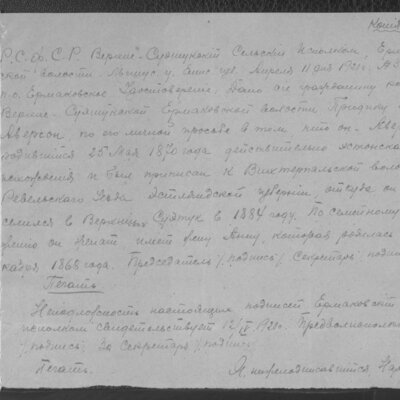 Копия
Р.С.Ф.С.Р. Верхне-Суэтукский Сельский Исполком, Ерма
ской волости, Минус. у. Енис. губ. Апреля 11 дня 1921 г. №
п.о. Ермаковское. Удостоверение. Дано сие гражданину
Верхне-Суэтукский Ермаковской волости Придику
Аверсон, по его личной просьбе в том, что он-Авер
родившийся 25 Мая 1870 года действительно эстонско
происхождения и был приписан к Вихтерпальской воло
Ревельского уезда Эстляндской губернии, откуда он
селился в Верхний Суэтук в 1884 году. По семейному
жению он женат, имеет жену Анну, которая родилась
кабря 1868 года. Председатель /подпись/ Секретарь /подпи
Печать
Неподложность настоящих подписей Ермаковский
полком свидетельствует 12/IV 1921 г. Предволисполко
/подпись/ За Секретаря /подпись
Печать.
Я, нижеподписавшийся, Нар